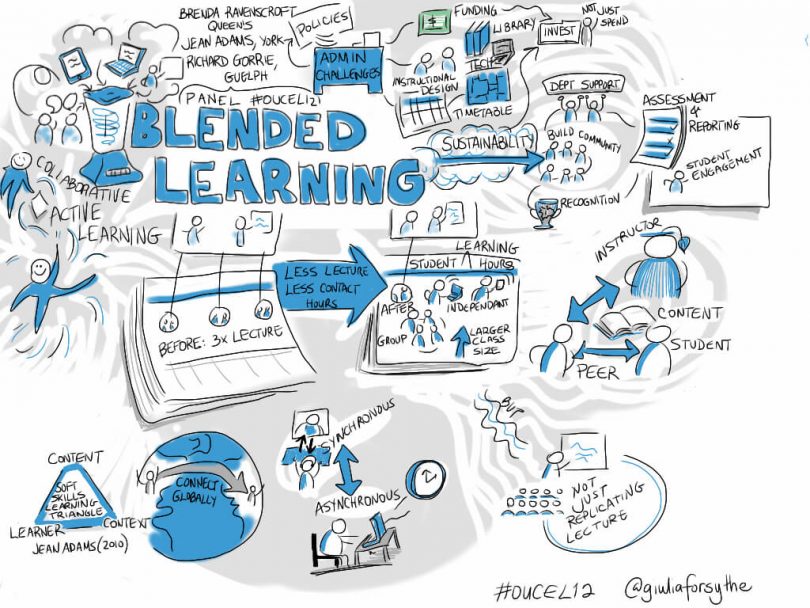 BRENDA RAVENSCROFT
QUEEN'S
JEAN ADAMS, YORK
RICHARD GORRIE,
GUELPH
(PANEL #OUCEL12)
BLENDED
LEARNING
POLICIES
ADMIN
CHALLENGES
$
FUNDING
LIBRARY
TECH
INSTRUCTIONAL
DESIGN
TIMETABLE
INVEST
NOT JUST
SPEND
SUSTAINABILITY
DEPT SUPPORT
BUILD COMMUNITY
RECOGNITION
ASSESSMENT
&
REPORTING
STUDENT
ENGAGEMENT
COLLABORATIVE
ACTIVE
LEARNING
BEFORE: 3x LECTURE
LESS LECTURE
LESS CONTACT
HOURS
LEARNING
STUDENT ∧ HOURS
AFTER
INDEPENDANT
GROUP
LARGER
CLASS
SIZE
INSTRUCTOR
CONTENT
STUDENT
PEER
CONTENT
SOFT
SKILLS
LEARNING
TRIANGLE
LEARNER
CONTEXT
JEAN ADAMS (2010)
CONNECT
GLOBALLY
SYNCHRONOUS
ASYNCHRONOUS
BUT
NOT
JUST
REPLICATING
LECTURE
#OUCEL12
@giuliaforsythe